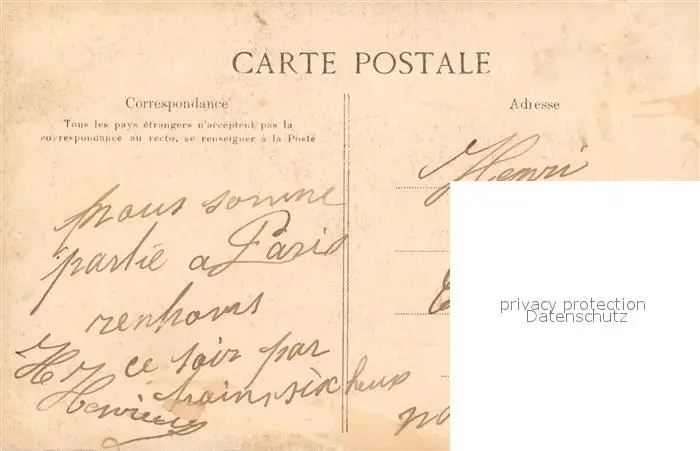 CARTE POSTALE
Correspondance
Tous les pays étrangers n'acceptent pas la
correspondance au recto, se renseigner à la Poste
Adresse
Henri
nous somme
partie a Paris
rentrons
ce soir par
train, six heur
privacy protection
Datenschutz